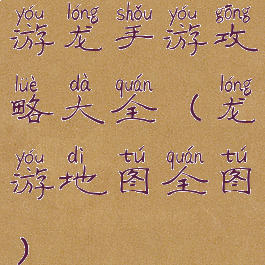 yóu lóng shǒu yóu gōng
游龙手游攻
lüè dà quán lóng
略大全（龙
yóu dì tú quán tú
游地图全图
）